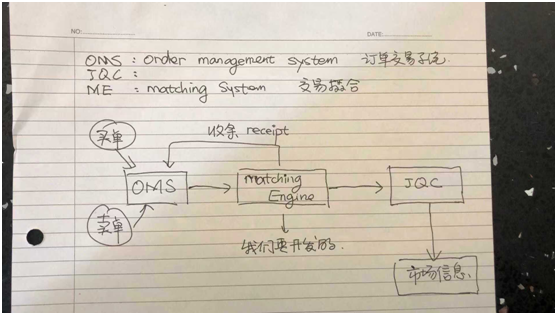 NO:
DATE:
OMS : Order management system 订单交易系统.
JQC :
ME : matching System 交易撮合
买单
收条 receipt
OMS
matching Engine
JQC
卖单
我们要开发的.
市场信息.